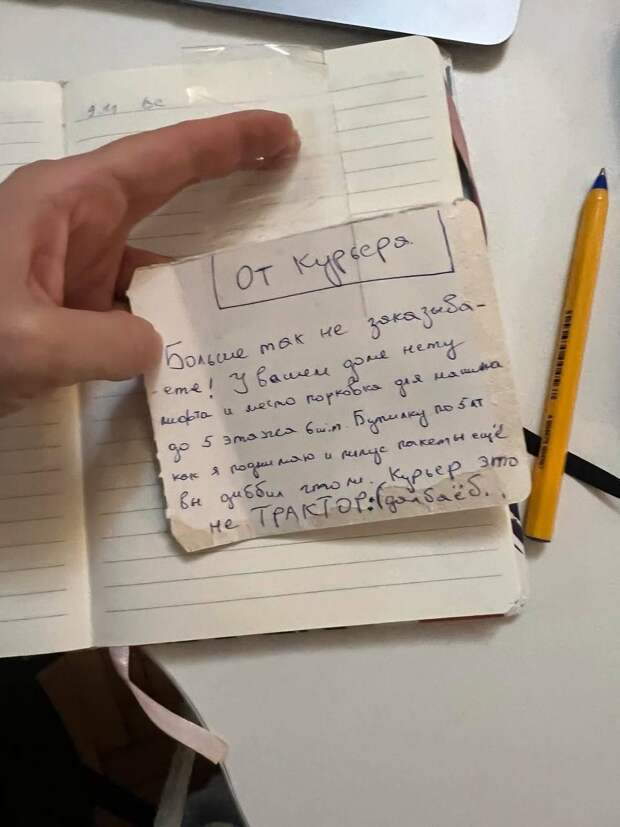 9.11 вс
От Курьера
Больше так не заказыва-
-ете! У вашем доме нету
лифта и место порковка для машина
до 5 этажа 6 шт. Бутилку по 5 лт
как я поднимаю и плюс пакеты ещё
вы диббил штоли. Курьер это
не ТРАКТОР:(долбаёб.